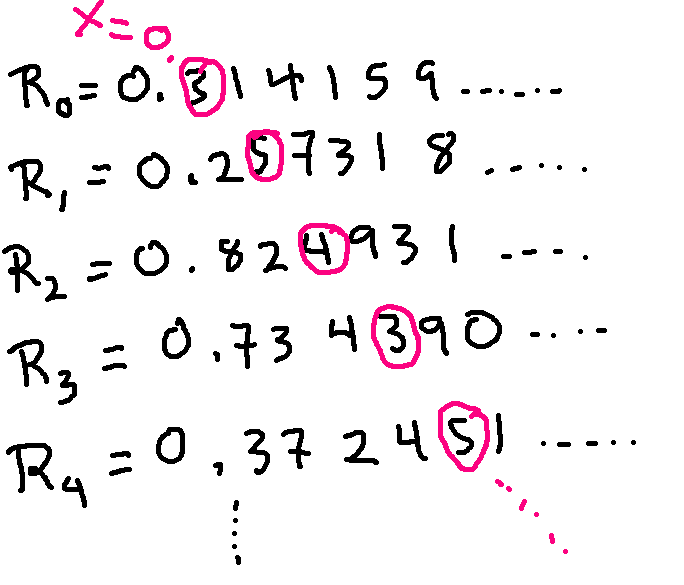 X=0.
R₀=0.314159......
R₁=0.257318.....
R₂=0.824931....
R₃=0.734390....
R₄=0.372451.....